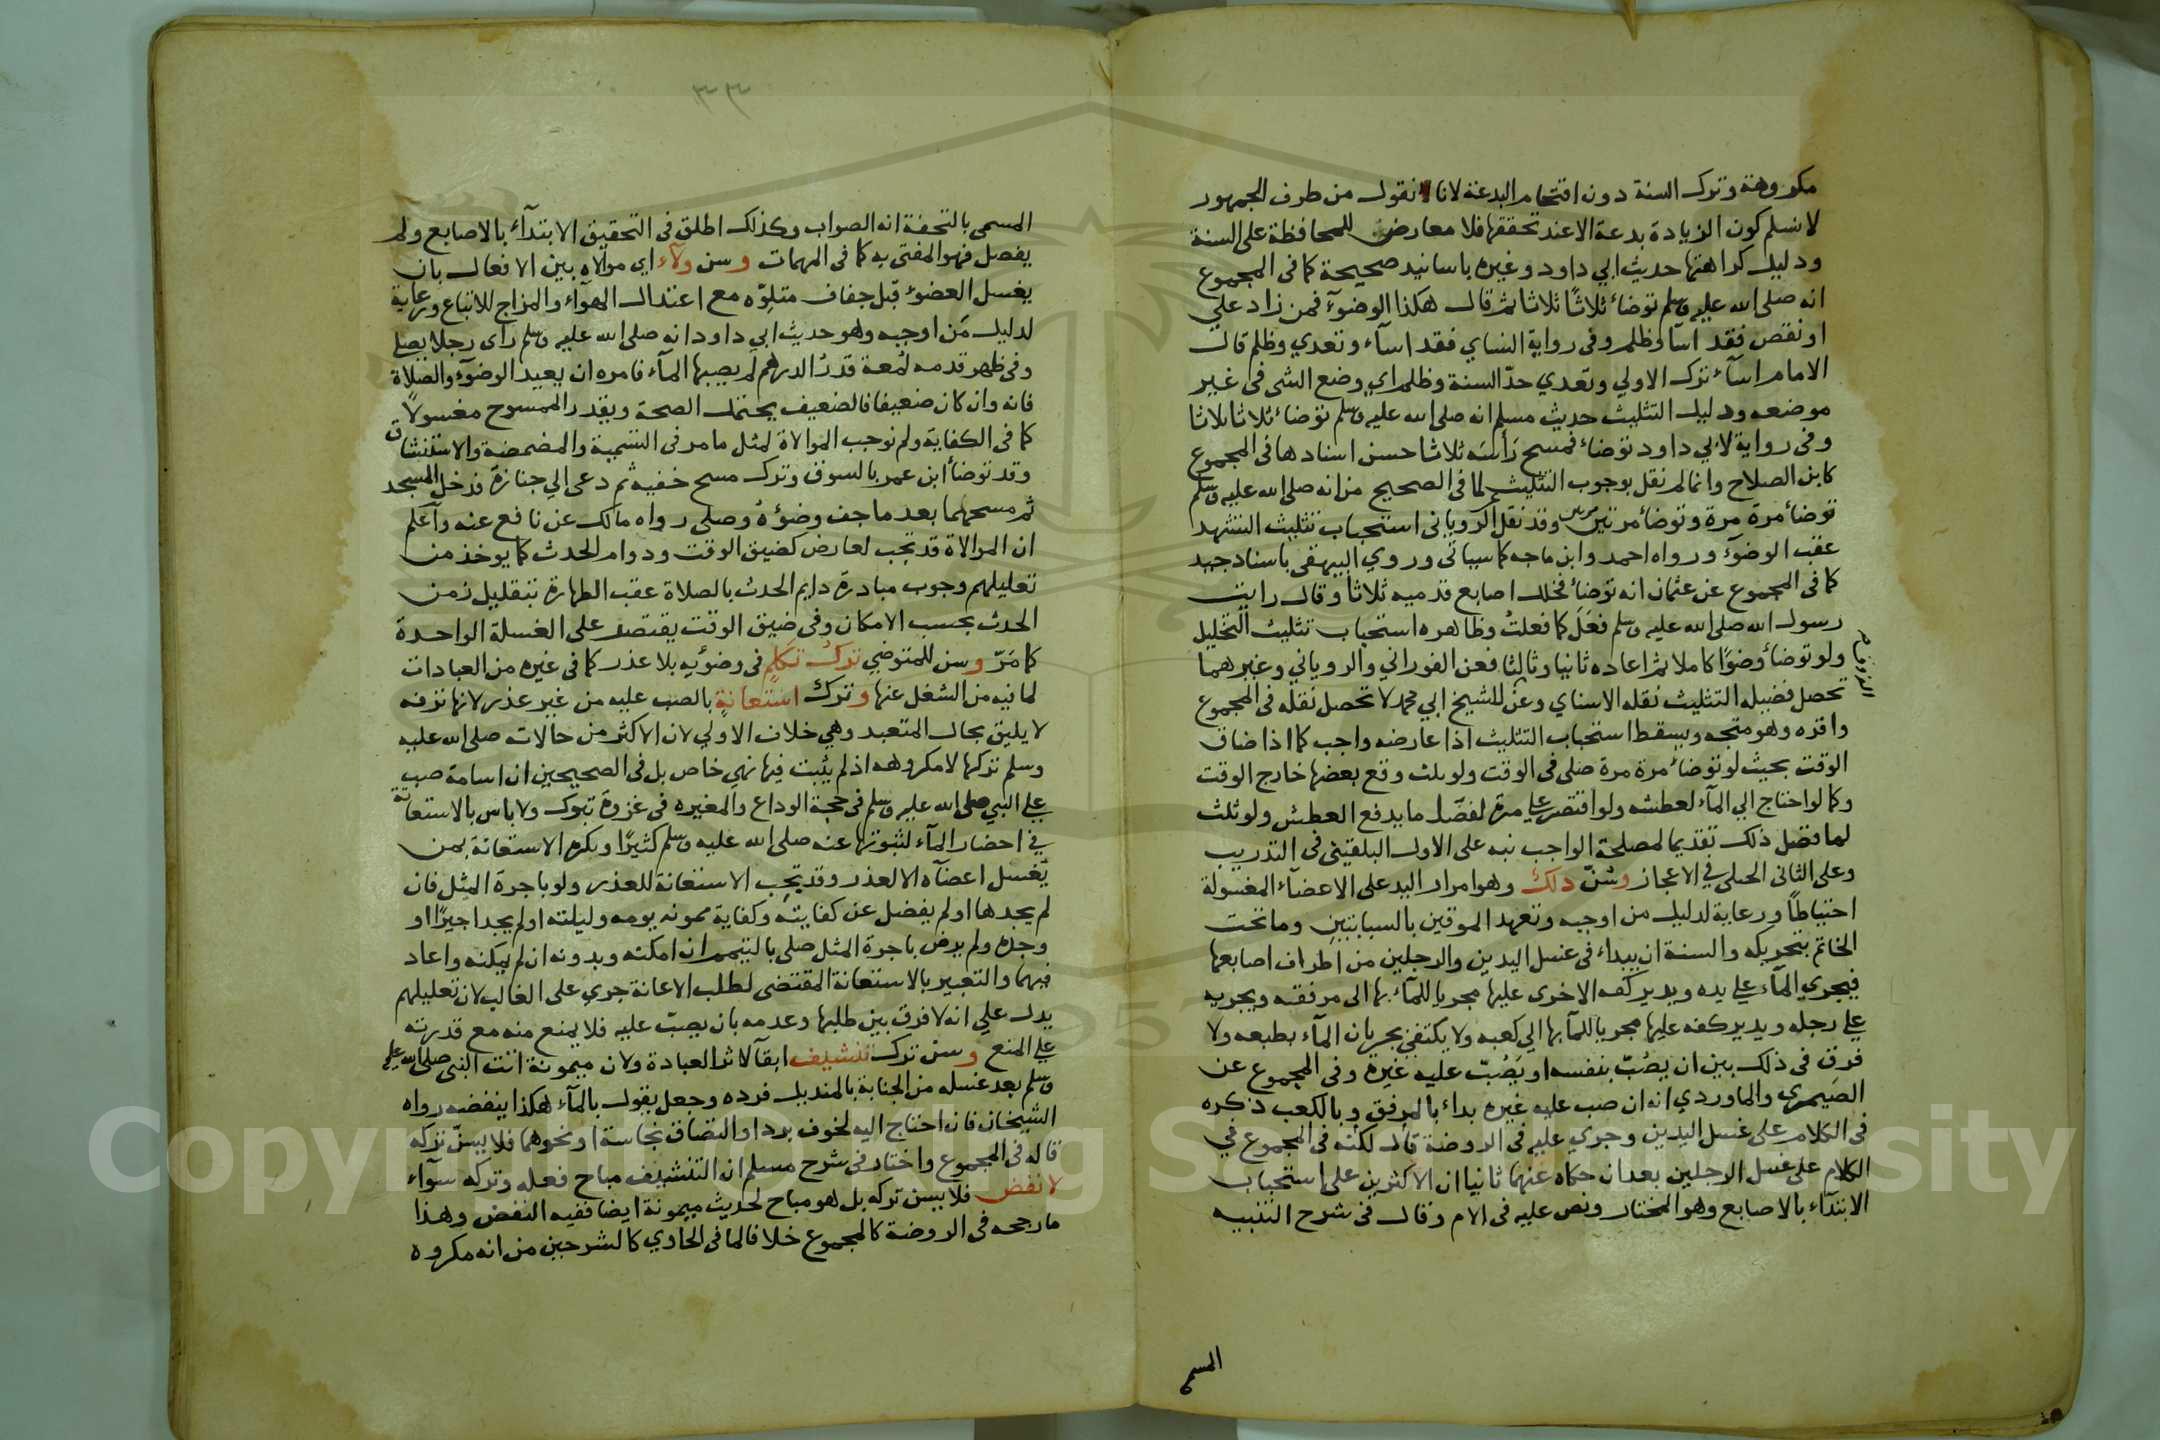 مكروهة وترك السنة دون اقتحام البدعة لانا نقول من طرف الجمهور
لا نسلم كون الزيادة بدعة الا عند تحققها فلا معارض للمحافظة على السنة
ودليل كراهتها حديث ابي داود وغيره باسانيد صحيحة كما في المجموع
انه صلى الله عليه وسلم توضأ ثلاثًا ثلاثا ثم قال هكذا الوضوء فمن زاد على
او نقص فقد اسآ وظلم وفي رواية النساي فقد اسآء وتعدي وظلم قال
الامام اسآء ترك الاولي وتعدي حدّ السنة وظلم اي وضع الشي في غير
موضعه ودليل التثليث حديث مسلم انه صلى الله عليه وسلم توضاء ثلاثا ثلاثا
وفي رواية لابي داود توضاء فمسح رأسه ثلاثا حسن اسنادها في المجموع
كابن الصلاح وانما لم نقل بوجوب التثليث لما في الصحيح من انه صلى الله عليه وسلم
توضاء مرة مرة وتوضاء مرتين مرتين وقد نقل الروياني استحباب تثليث التشهد
عقب الوضوء ورواه احمد وابن ماجه كما سياتي وروي البيهقي باسناد جيد
كما في المجموع عن عثمان انه توضاء فخلل اصابع قدميه ثلاثا وقال رايت
رسول الله صلى الله عليه وسلم فعل كما فعلت وظاهره استحباب تثليث التخليل
ولو توضاء وضوًا كاملا ثم اعاده ثانيا وثالثا فعن الفوراني والروياني وغيرهما
تحصل فضيله التثليث نقله الاسناي وعن الشيخ ابي محمد لا تحصل نقله في المجموع
واقره وهو متجه ويسقط استحباب التثليث اذا عارضه واجب كما اذا ضاق
الوقت بحيث لو توضاء مرة مرة صلى في الوقت ولو ثلث وقع بعضها خارج الوقت
وكما لو احتاج الي المآء لعطشه ولو اقتصر على مرة لفضل ما يدفع العطش ولو ثلث
لما فضل ذلك تقديما لمصلحة الواجب نبه على الاول البلقيني في التدريب
وعلى الثاني الجيلي في الاعجاز وسُنّ دلك وهو امرار اليد على الاعضآء المغسولة
احتياطًا ورعاية لدليل من اوجبه وتعهد الموقين بالسبابتين وما تحت
الخاتم بتحريكه والسنة ان يبداء في غسل اليدين والرجلين من اطراف اصابعها
فيجري المآء على يده ويدير كفه الاخرى عليها مجريا للمآء بها الى مرفقه ويجريه
على رجله ويدير كفه عليها مجريا للمآ بها الي كعبه ولا يكتفي بجريان المآء بطبعه ولا
فرق في ذلك بين ان يصُبّ بنفسه او يَصُبّ عليه غيره وفي المجموع عن
الصيمري والماوردي انه ان صب عليه غيره بداء بالمرفق وبالكعب ذكره
في الكلام على غسل اليدين وجري عليه في الروضة قال لكنه في المجموع في
الكلام على غسل الرجلين بعد ان حكاه عنهما ثانيا ان الاكثرين على استحباب
الابتدآء بالاصابع وهو المختار ونص عليه في الام وقال في شرح التنبيه
المسمى
المسمى بالتحفة انه الصواب وكذلك اطلق في التحقيق الابتدآء بالاصابع ولم
يفصل فهو المفتى به كما في المهمات وسن ولآء اي موالاه بين الافعال بان
يغسل العضوَ قبل جفاف متلوّه مع اعتدال الهوآء والمزاج للاتباع ورعاية
لدليل مَن اوجبه وهو حديث ابي داود انه صلى الله عليه وسلم راى رجلا يصلي
وفي ظهر قدمه لُمعة قدرُ الدرهم لم يصبها المآء فامره ان يعيد الوضوء والصلاة
فانه وان كان ضعيفا فالضعيف يحتمل الصحة ويقدر الممسوح مغسولاً
كما في الكفاية ولم نوجب الموالاة لمثل ما مر في التسمية والمضمضة والاستنشاق
وقد توضأ ابن عمر بالسوق وترك مسح خفيه ثم دعى الي جنازة فدخل المسجد
ثم مسحهما بعد ما جف وضوءُهُ وصلى رواه مالك عن نافع عنه وآعلم
ان الموالاة قد تجب لعارض كضيق الوقت ودوام الحدث كما يوخذ من
تعليلهم وجوب مبادرة دايم الحدث بالصلاة عقب الطهارة بتقليل زمن
الحدث بحسب الامكان وفي ضيق الوقت يقتصر على الغسلة الواحدة
كما مَرّ وسن للمتوضي تركُ تكلم في وضوئيه بلا عذر كما في غيره من العبادات
لما فيه من الشغل عنها وترك استعانةٍ بالصب عليه من غير عذر لانها ترفه
لا يليق بحال المتعبد وهي خلاف الاولي لان الاكثر من حالات صلى الله عليه
وسلم تركها لا مكروهه اذ لم يثبت فيها نهي خاص بل في الصحيحين ان اسامة صب
على النبي صلى الله عليه وسلم في حجة الوداع والمغيره في غزوة تبوك ولا باس بالاستعانة
في احضار المآء لثبوتها عنه صلى الله عليه وسلم كثيرًا ويكره الاستعانة بمن
يغسل اعضآه الا لعذر وقد يجب الاستعانة للعذر ولو باجرة المثل فان
لم يجدها او لم يفضل عن كفايته وكفاية ممونه يومه وليلته او لم يجد اجيرًا او
وجده ولم يرض باجرة المثل صلى بالتيمم ان امكنه وبدونه ان لم يمكنه واعاد
فيهما والتعبير بالاستعانة المقتضى لطلب الاعانة جري على الغالب لان تعليلهم
يدل على انه لا فرق بين طلبها وعدمه بان يصبّ عليه فلا يمنع منه مع قدرته
على المنع وسن ترك تنشيف ابقآ لاثر العبادة ولان ميمونة اتت النبي صلى الله عليه
وسلم بعد غسله من الجنابة بالمنديل فرده وجعل يقول بالمآء هكذا ينفضه رواه
الشيخان فان احتاج اليه لخوف برد او التصاق نجاسة او نحوهما فلا يسنّ تركه
قاله في المجموع واختار في شرح مسلم ان التنشيف مباح فعله وتركه سوآء
لا نفض فلا يسن تركه بل هو مباح لحديث ميمونة ايضا ففيه النفض وهذا
ما رجحه في الروضة كالمجموع خلافا لما في الحاوي كالشرحين من انه مكروه